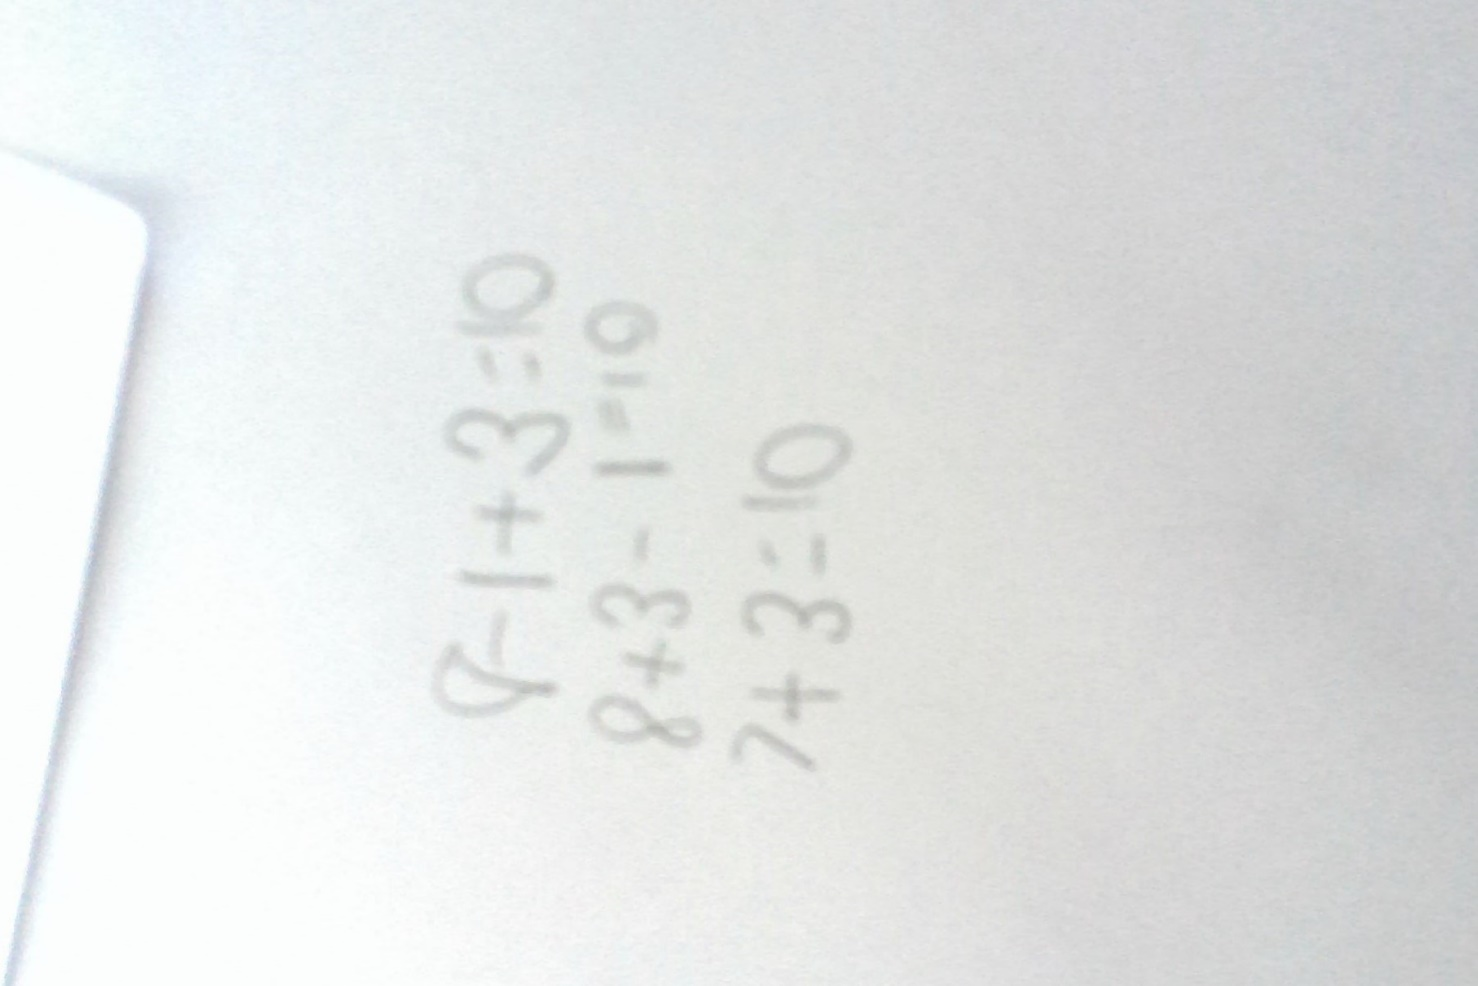 8-1+3=10
8+3-1=10
7+3=10